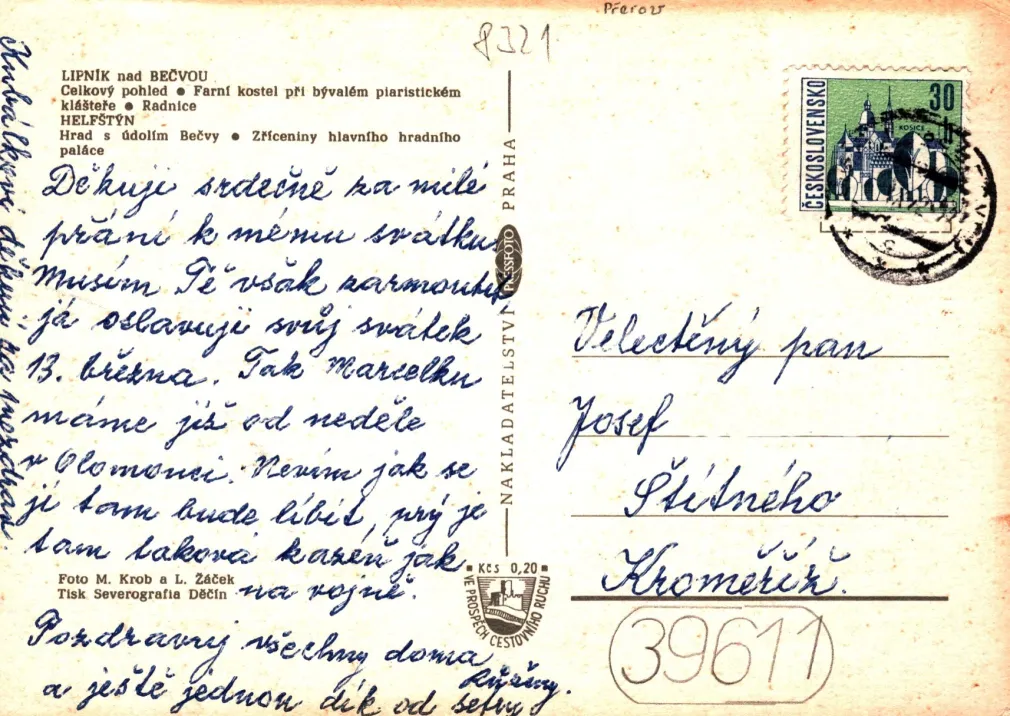 Přerov
8321
LIPNÍK nad BEČVOU
Celkový pohled ● Farní kostel při bývalém piaristickém
klášteře ● Radnice
HELFŠTÝN
Hrad s údolím Bečvy ● Zříceniny hlavního hradního
paláce
Děkuji srdečně za milé
přání k mému svátku
Musím Tě však zarmoutit
já oslavuji svůj svátek
13. března. Tak Marcelku
máme již od neděle
v Olomouci. Nevím jak se
jí tam bude líbit, prý je
tam taková kázéň jak
na vojně.
Foto M. Krob a L. Žáček
Tisk Severografia Děčín
Pozdravuj všechny doma
a ještě jednou dík od sestry
Růženy.
Kubálkovi děkují za pozdrav.
NAKLADATELSTVÍ PRESSFOTO PRAHA
Kčs 0,20
VE PROSPĚCH CESTOVNÍHO RUCHU
ČESKOSLOVENSKO
30 h
KOŠICE
Velectěný pan
Josef
Štítného
Kroměříž.
39611